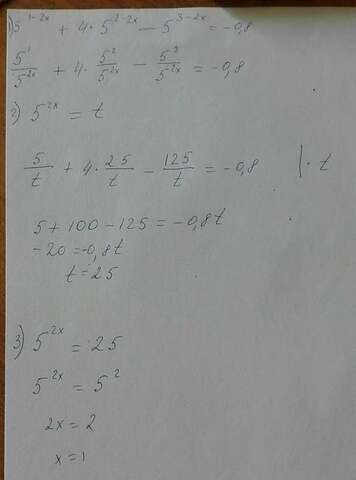 1) 5^{1-2x} + 4·5^{2-2x} - 5^{3-2x} = -0,8
5^1/5^{2x} + 4·5^2/5^{2x} - 5^3/5^{2x} = -0,8
2) 5^{2x} = t
5/t + 4·25/t - 125/t = -0,8 |·t
5+100-125=-0,8t
-20=-0,8t
t=25
3) 5^{2x} = 25
5^{2x} = 5^2
2x=2
x=1